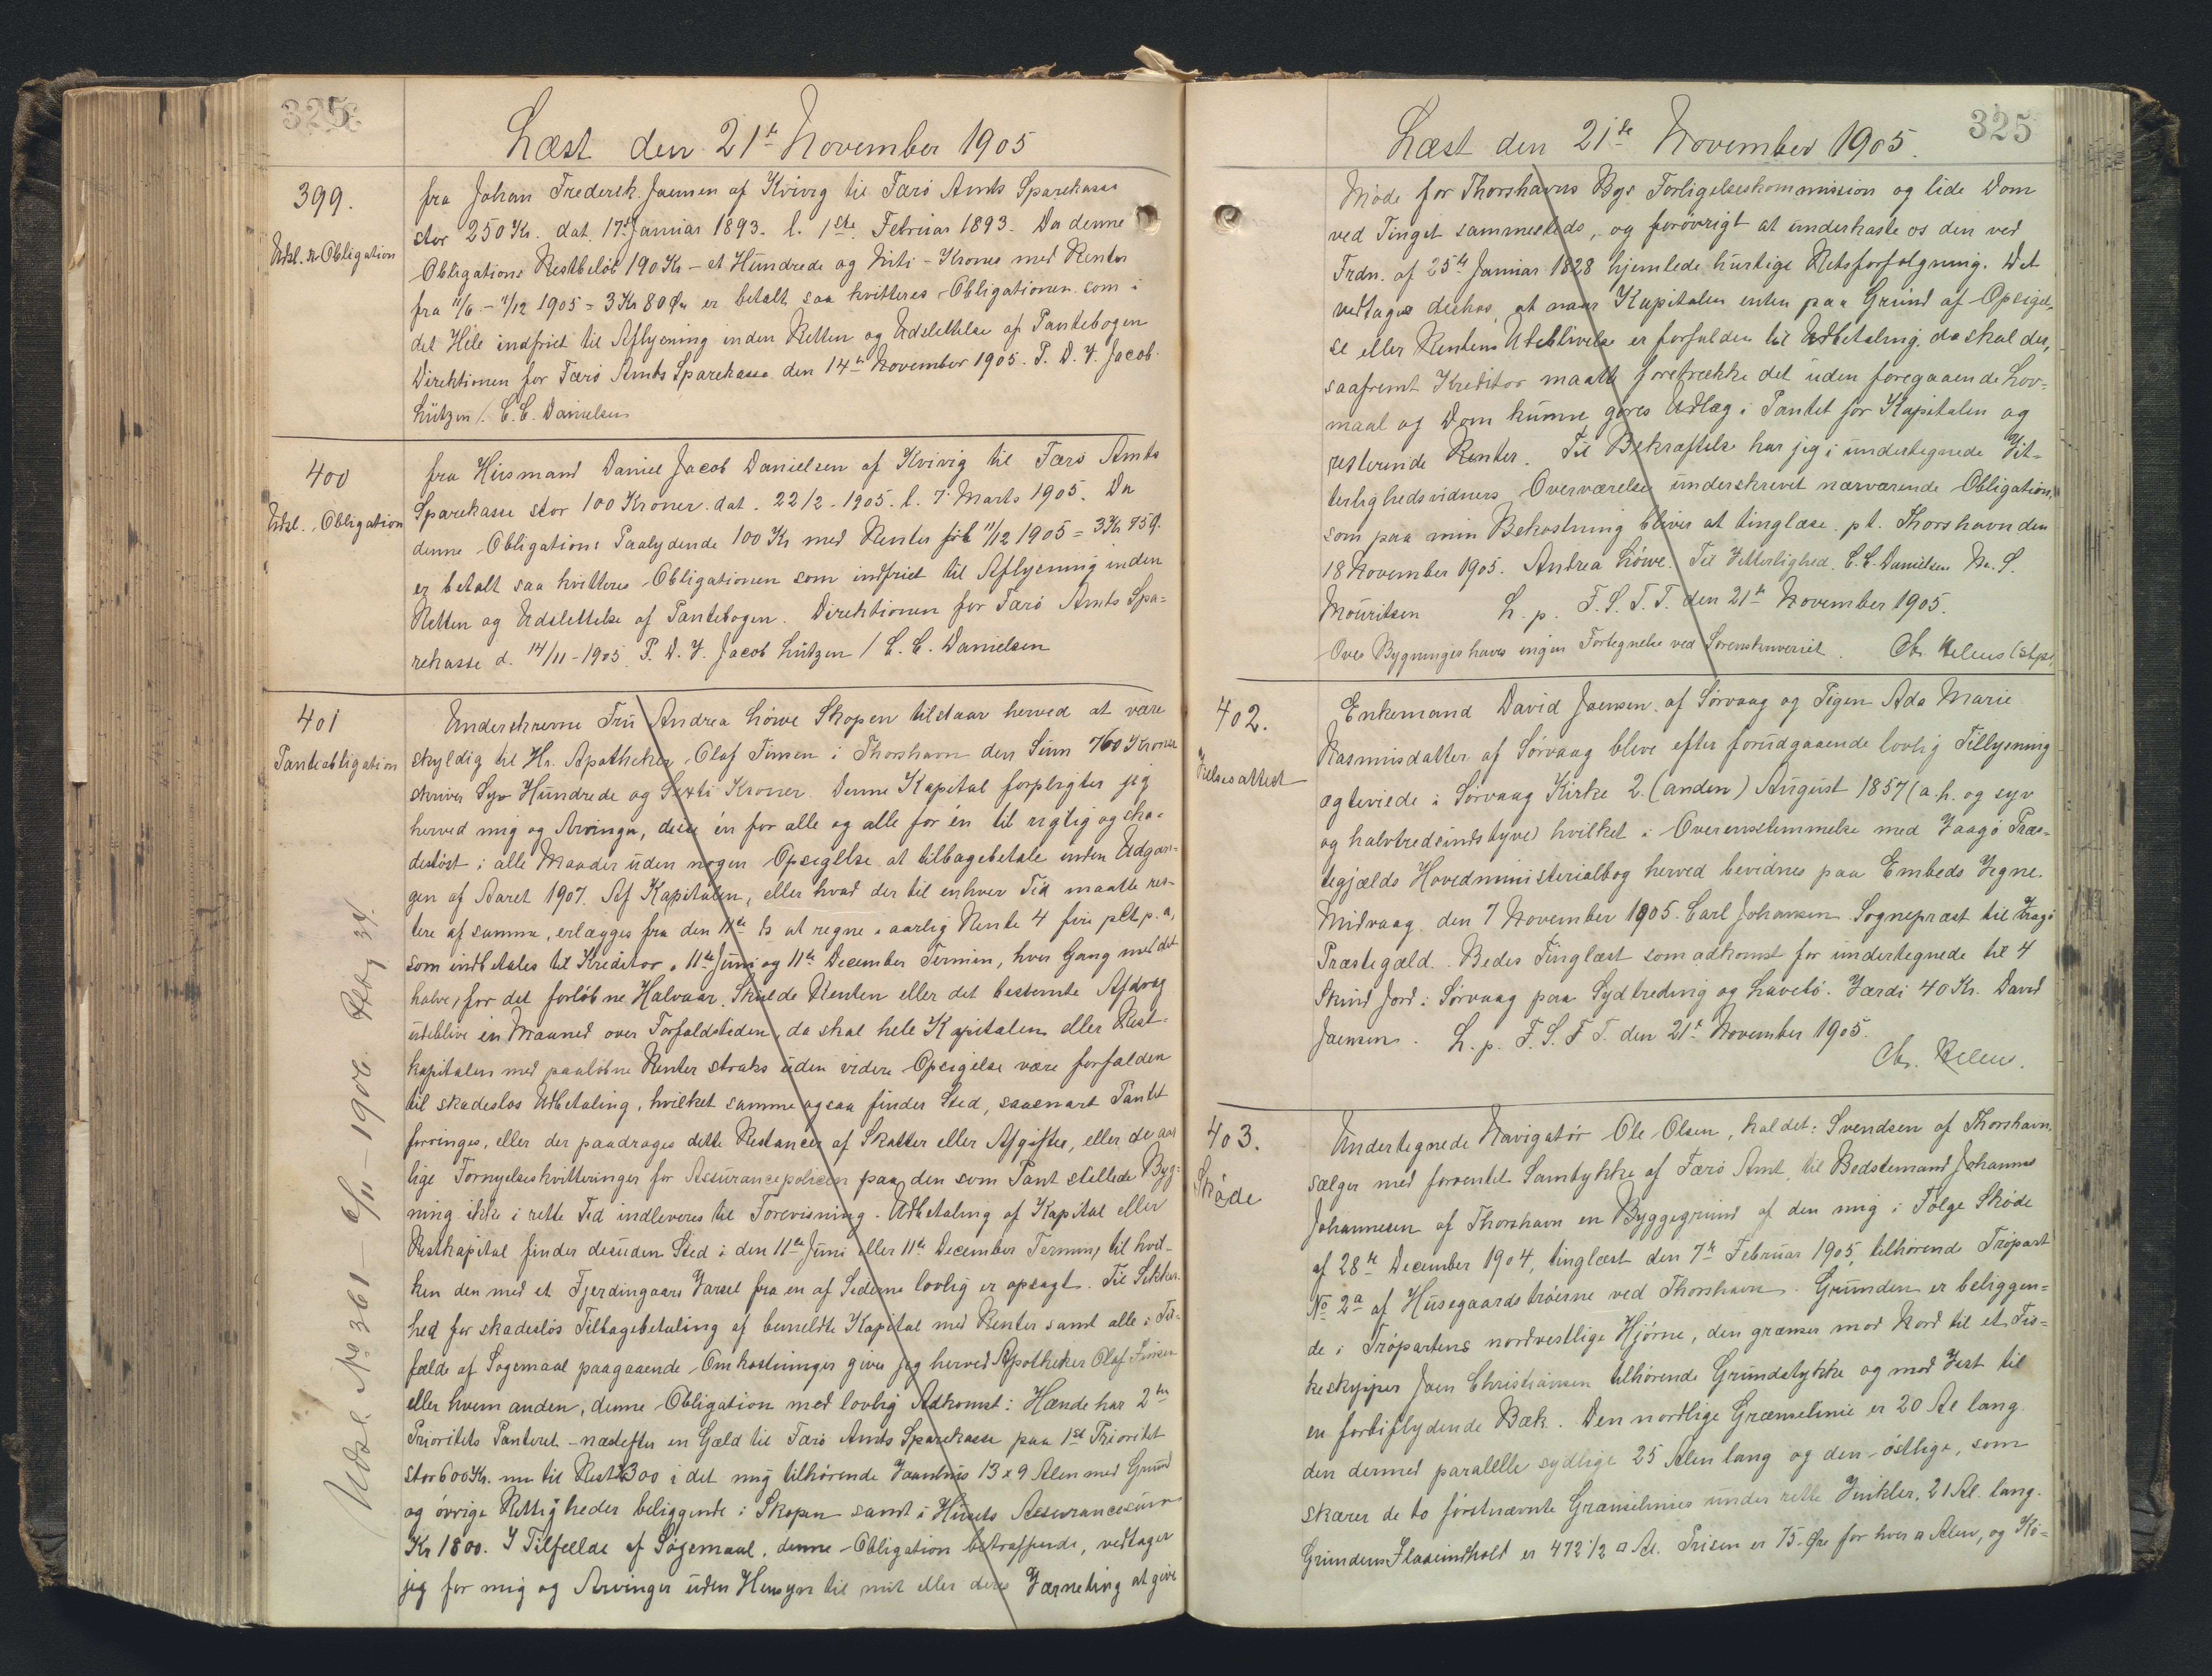 325
Læst den 21de November 1905
399.
Udsl. Obligation
fra Johan Frederik Joensen af Kvivig til Færø Amts Sparekasse
stor 250 Kr. dat. 17de Januar 1893. l. 1ste Februar 1893. Da denne
Obligations Restbeløb 190 Kr - et Hundrede og Niti - Kroner med Renter
fra 11/6 - 11/12 1905 = 3 Kr 80 Øre er betalt saa kvitteres Obligationen som i
det Hele indfriet til Aflysning inden Retten og Udslettelse af Pantebogen
Direktionen for Færø Amts Sparekasse den 14de November 1905. P. D. V. Jacob
Lützen /. C. C. Danielsen
400
Udsl. Obligation
fra Husmand Daniel Jacob Danielsen af Kvivig til Færø Amts
Sparekasse stor 100 Kroner. dat. 22/2 - 1905. l. 7. Marts 1905. Da
denne Obligations Paalydende 100 Kr med Renter til 11/12 1905 = 3 Kr 75 Ø.
er betalt saa kvitteres Obligationen som indfriet til Aflysning inden
Retten og Udslettelse af Pantebogen. Direktionen for Færø Amts Spa=
rekasse d. 14/11 - 1905. P. D. V. Jacob Lützen / C. C. Danielsen
401
Panteobligation
Underskrevne Fru Andrea Löwe Skopen tilstaar herved at være
skyldig til Hr. Apotheker Olaf Finsen i Thorshavn den Sum 760 Kroner
skriver Syv Hundrede og Sexti Kroner. Denne Kapital forpligter jeg
herved mig og Arvinger, disse én for alle og alle for én til rigtig og ska=
desløst i alle Maader uden nogen Opsigelse at tilbagebetale inden Udgan=
gen af Aaret 1907. Af Kapitalen, eller hvad der til enhver Tid maatte res=
tere af samme, erlægges fra den 11te ds at regne i aarlig Rente 4 fire pCt p. a,
som indbetales til Kreditor i 11te Juni og 11te December Termin, hver Gang med det
halve, for det forløbne Halvaar. Skulde Renten eller det bestemte Afdrag
udeblive én Maaned over Forfaldstiden, da skal hele Kapitalen eller Rest=
kapitalen med paaløbne Renter straks uden videre Opsigelse være forfalden
til skadesløs Udbetaling, hvilket samme ogsaa finder Sted, saasnart Pantet
forringes, eller der paadrages dette Restancer af Skatter eller Afgifter, eller de aar
lige Fornyelseskvitteringer for Assurancepolicen paa den som Pant stillede Byg=
ning ikke i rette Tid indleveres til Forevisning. Udbetaling af Kapital eller
Restkapital finder desuden Sted i den 11te Juni eller 11te December Termin, til hvil=
ken den med et Fjerdingaars Varsel fra en af Siderne lovlig er opsagt. Til Sikker=
hed for skadesløs Tilbagebetaling af bemeldte Kapital med Renter samt alle i Til=
fælde af Søgemaal paagaaende Omkostninger giver jeg herved Apotheker Olaf Finsen
eller hvem anden, denne Obligation med lovlig Adkomst i Hænde har 2den
Prioritets Panteret - næstefter en Gæld til Færø Amts Sparekasse paa 1ste Prioritet
stor 600 Kr. nu til Rest 300 i det mig tilhørende Vaanhus 13 x 9 Alen med Grund
og øvrige Rettigheder beliggende i Skopen samt i Husets Assurancesum
Kr 1800. I Tilfælde af Søgemaal, denne Obligation betræffende, vedtager
jeg for mig og Arvinger uden Hensyn til mit eller deres Værneting at give
Udsl. No 361 - 6/11 - 1906
325
Læst den 21de November 1905.
Møde for Thorshavns Bys Forligelseskommission og lide Dom
ved Tinget sammesteds, og forøvrigt at underkaste os den ved
Frdn. af 25de Januar 1828 hjemlede hurtige Retsforfølgning. Det
vedtages derhos, at naar Kapitalen enten paa Grund af Opsigel=
se eller Rentens Udeblivelse er forfalden til Udbetaling, da skal der,
saafremt Kreditor maatte foretrække det uden foregaaende Lov=
maal og Dom kunne gøres Udlæg i Pantet for Kapitalen og
resterende Renter. Til Bekræftelse har jeg i undertegnede Vit=
terlighedsvidners Overværelse underskrevet nærværende Obligation,
som paa min Bekostning bliver at tinglæse. pt. Thorshavn den
18 November 1905. Andrea Löwe. Til Vitterlighed. C. C. Danielsen M. S.
Mouritsen L. p. F. S. T. T. den 21de November 1905.
Over Bygninger haves ingen Fortegnelse ved Sorenskriveriet.
402.
Vielsesattest
Enkemand David Joensen af Sørvaag og Pigen Ada Marie
Rasmusdatter af Sørvaag bleve efter forudgaaende lovlig Tillysning
ægteviede i Sørvaag Kirke 2. (anden) August 1857 (a. h. og syv
og halvtredsindstyve) hvilket i Overensstemmelse med Vaagø Præs=
tegjælds Hovedministerialbog herved bevidnes paa Embeds Vegne.
Midvaag den 7 November 1905. Carl Johansen Sognepræst til Vaagø
Præstegæld. Bedes Tinglæst som adkomst for undertegnede til 4
Skind Jord i Sørvaag paa Sydtreding og Lavebø. Værdi 40 Kr. David
Joensen. L. p. F. S. T. T. den 21de November 1905.
403.
Skøde
Undertegnede Navigatør Ole Olsen, kaldet: Svendsen af Thorshavn,
sælger med forventet Samtykke af Færø Amt til Bedstemand Johannes
Johannesen af Thorshavn en Byggegrund af den mig i Følge Skøde
af 28de December 1904, tinglæst den 7de Februar 1905, tilhørende Trøpart
No 2a af Husegaardstrøerne ved Thorshavn. Grunden er beliggen=
de i Trøpartens nordvestlige Hjørne, den grænser mod Nord til et Fis=
keskipper Joen Christiansen tilhørende Grundstykke og mod Vest til
en forbiflydende Bæk. Den nordlige Grænselinie er 20 Al lang.
den dermed parallelle sydlige 25 Alen lang og den østlige, som
skærer de to førstnævnte Grænselinier under rette Vinkler, 21 Al. lang.
Grundens Fladeindhold er 472 1/2 □ Al. Prisen er 75 Øre for hver □ Alen, og Kø=